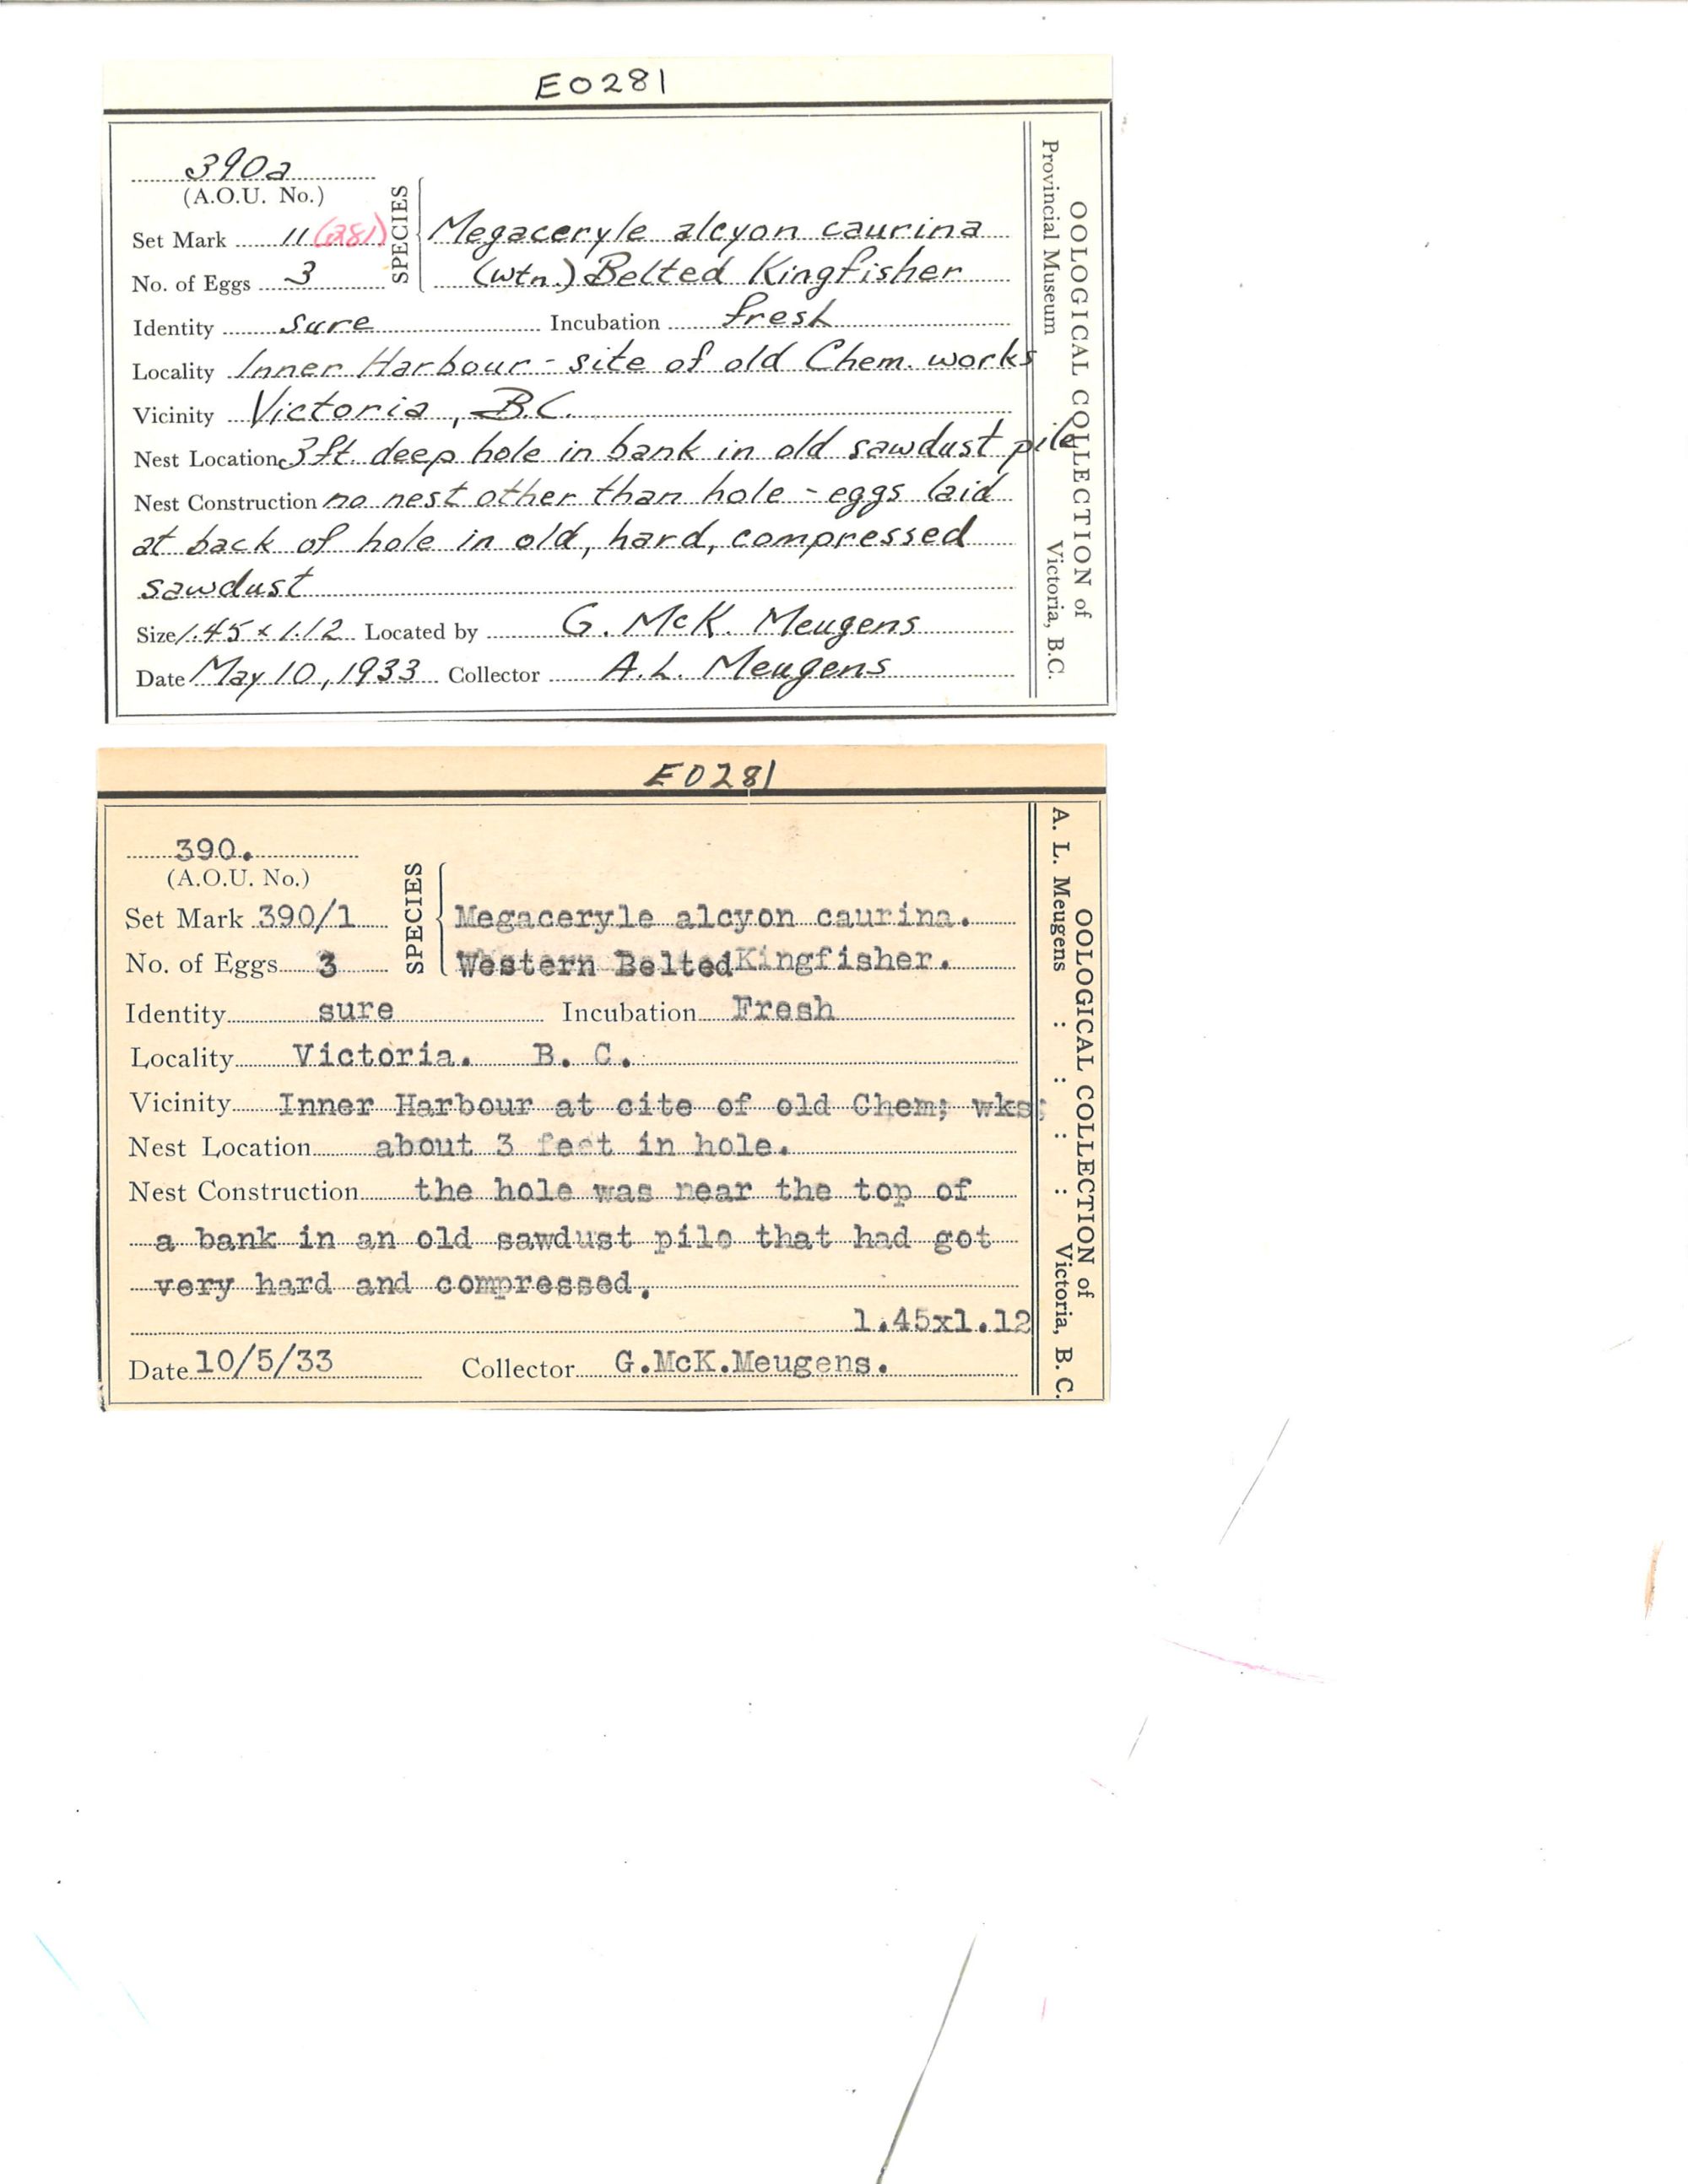 E0281
390a
(A.O.U. No.)
Set Mark 11 (281)
No. of Eggs 3
SPECIES
Megaceryle alcyon caurina
(wtn.) Belted Kingfisher
Identity sure Incubation fresh
Locality Inner Harbour - site of old Chem. works
Vicinity Victoria, B.C.
Nest Location 3ft. deep hole in bank in old sawdust pile
Nest Construction no nest other than hole - eggs laid
at back of hole in old, hard, compressed
sawdust
Size 1.45 x 1.12 Located by G. McK. Meugens
Date May 10, 1933 Collector A.L. Meugens
OOLOGICAL COLLECTION of
Provincial Museum Victoria, B.C.
E0281
390.
(A.O.U. No.)
Set Mark 390/1
No. of Eggs 3
SPECIES
Megaceryle alcyon caurina.
Western Belted Kingfisher.
Identity sure Incubation Fresh
Locality Victoria. B. C.
Vicinity Inner Harbour at cite of old Chem; wks;
Nest Location about 3 feet in hole.
Nest Construction the hole was near the top of
a bank in an old sawdust pile that had got
very hard and compressed.
1.45x1.12
Date 10/5/33 Collector G.McK.Meugens.
OOLOGICAL COLLECTION of
A. L. Meugens : : : : Victoria, B. C.